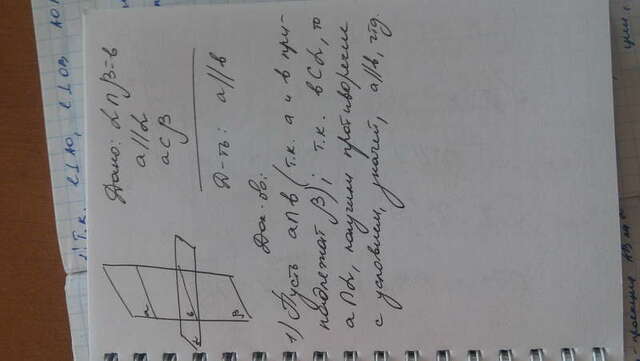 1) Т.к. l⊥AO, l⊥OB AO
Дано: α∩β=в
a∥α
a⊂β
Д-ть: a∥в
Док-во:
1) Пусть a∩в (т.к. a и в при-
надлежат β); т.к. в⊂α, то
a∩α, получили противоречие
с условием, значит, a∥в, чтд.
a
в
α
β
- проекция AB на